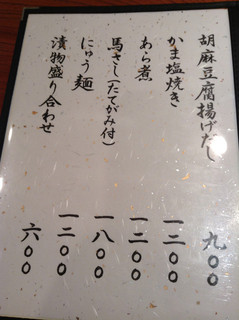 胡麻豆腐揚げだし 九〇〇
かま塩焼き 一二〇〇
あら煮 一二〇〇
馬さし(たてがみ付) 一八〇〇
にゅう麺 一二〇〇
漬物盛り合わせ 六〇〇